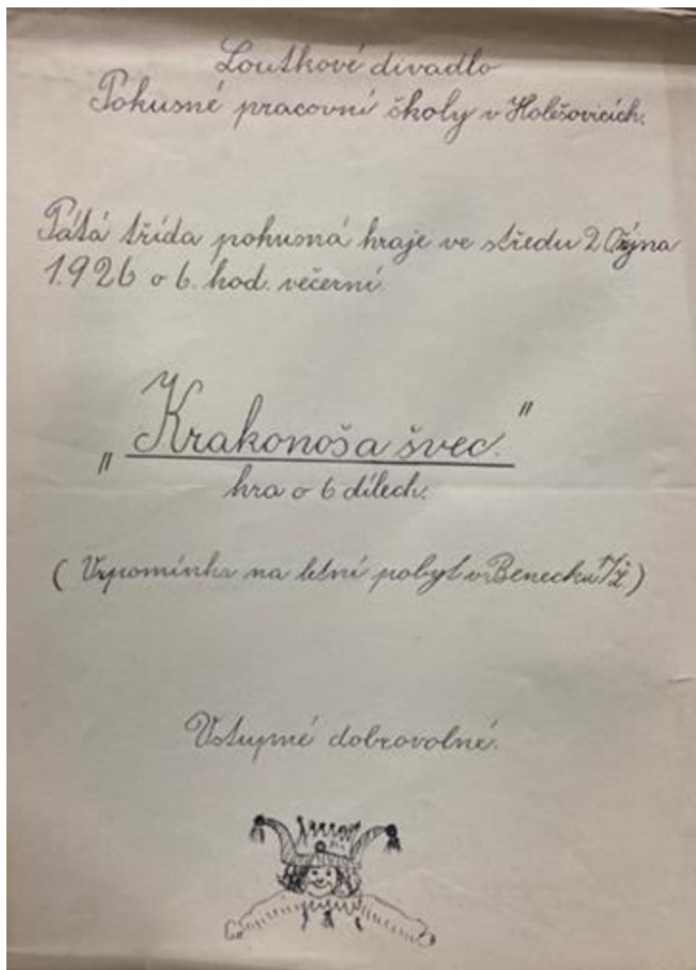 Loutkové divadlo
Pohusné pracovní školy v Holešovicích.
Pátá třída pohusná hraje ve středu 2 října
1.926 o 6. hod. večerní.
„Krakonoša švec."
hra o 6 dílech.
(Vzpomínka na letní pobyt v Benecku )
Vstupné dobrovolné.